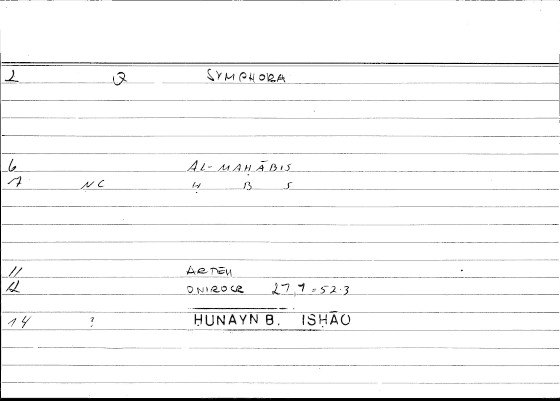 2 Q SYMPHORA
6 AL-MAḤĀBIS
7 NC Ḥ B S
11 ARTEM
12 ONIROCR 27,7 = 52.3
14 ? ḤUNAYN B. ISḤĀQ